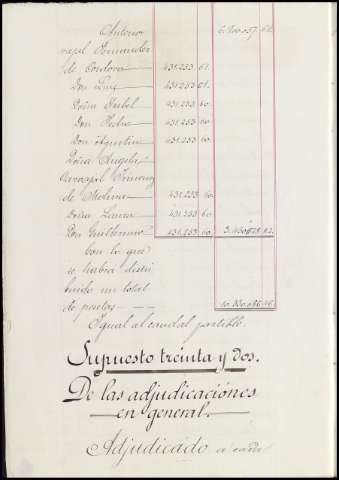 Antonio 6.900.057. 62.
vajal Fernandez
de Cordova 431.253. 61.
Don Luis 431.253. 61.
Doña Isabel 431.253. 60.
Don Pedro 431.253 60.
Don Agustin 431.253 60.
Doña Angela
Carvajal Jimenez
de Molina 431.253. 60.
Doña Laura 431.253 60.
Don Guillermo 431.253. 60. 3.450.028. 82.
Con lo que
se habrá distri
buido un total
de pesetas
Igual al caudal partible.
Supuesto treinta y dos.
De las adjudicaciónes
en general.
Adjudicado a cada